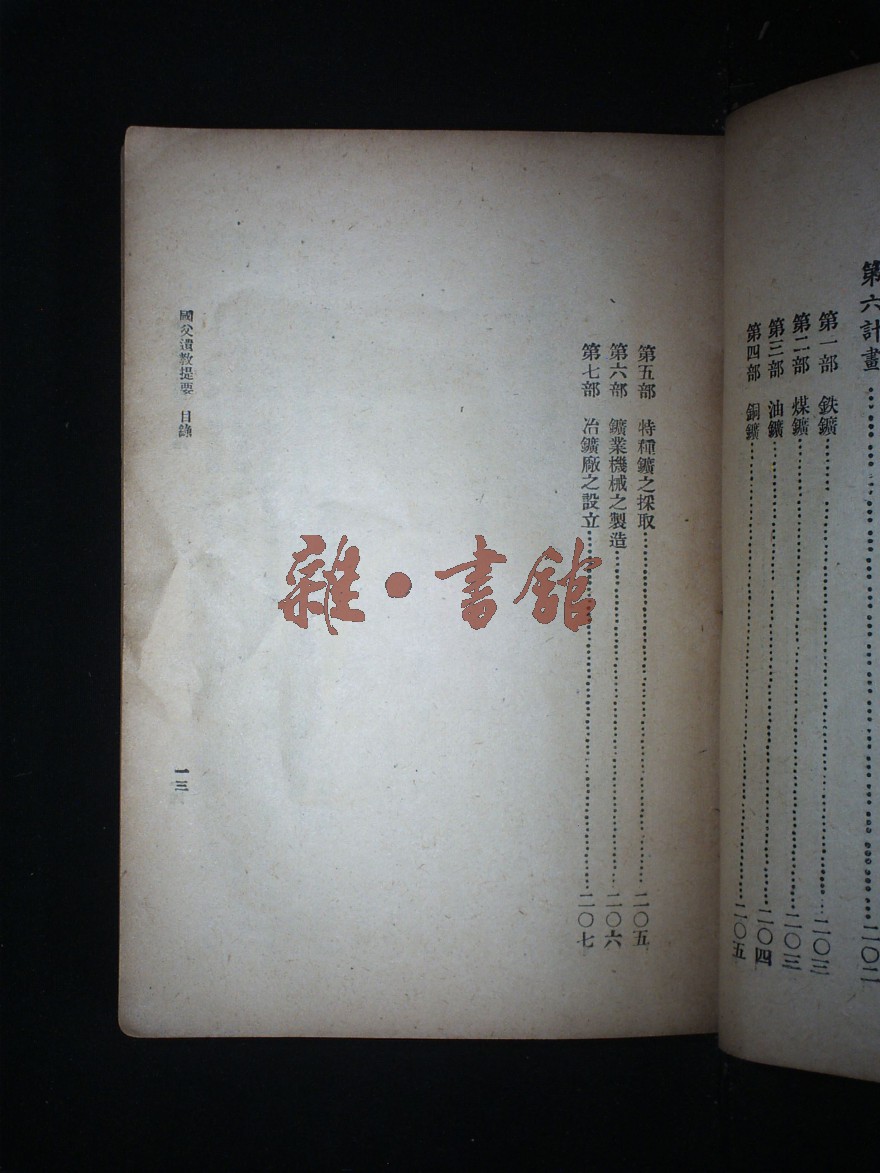 第六計畫……二〇二
第一部　鉄鑛……二〇三
第二部　煤鑛……二〇三
第三部　油鑛……二〇四
第四部　銅鑛……二〇五
第五部　特種鑛之採取……二〇五
第六部　鑛業機械之製造……二〇六
第七部　冶鑛廠之設立……二〇七
國父遺教提要　目錄
一三
雜·書館